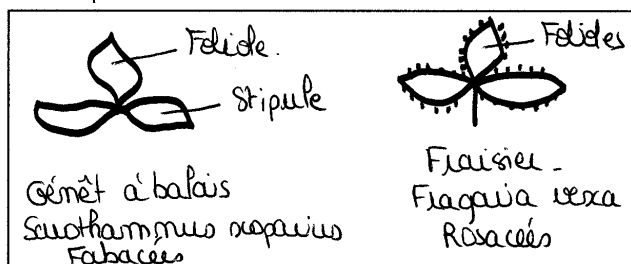 Foliole.
Stipule
Genêt à balais
Sarothamnus scoparius
Fabacées
Folioles
Fraisier -
Fragaria vexa
Rosacées